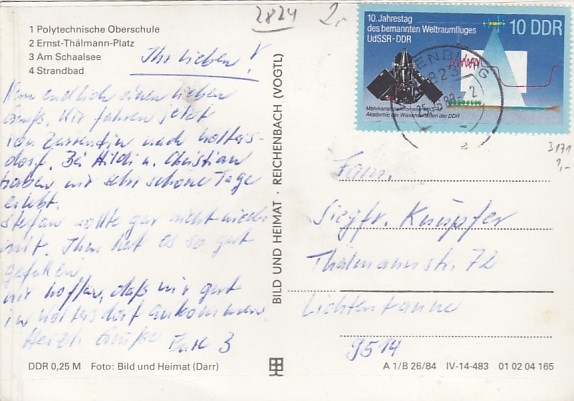 1 Polytechnische Oberschule
2 Ernst-Thälmann-Platz
3 Am Schaalsee
4 Strandbad
2824
2,-
Ihr Lieben!
Nun endlich einen lieben
Gruß. Wir fahren jetzt
von Zarrentin nach Wolters-
dorf. Bei Hildi u. Christian
haben wir sehr schöne Tage
erlebt.
Stefan wollte gar nicht wieder
mit. Ihm hat es so gut
gefallen.
Wir hoffen, daß wir gut
in Woltersdorf ankommen.
Herzl. Grüße
3
DDR 0,25 M Foto: Bild und Heimat (Darr)
BILD UND HEIMAT · REICHENBACH (VOGTL)
10. Jahrestag
des bemannten Weltraumfluges
UdSSR-DDR
10 DDR
Akademie der Wissenschaften der DDR
3171
1,-
Fam.
Siegfr. Knüpfer
Thälmannstr. 72
Lichtentanne
9514
A 1/B 26/84 IV-14-483 01 02 04 165